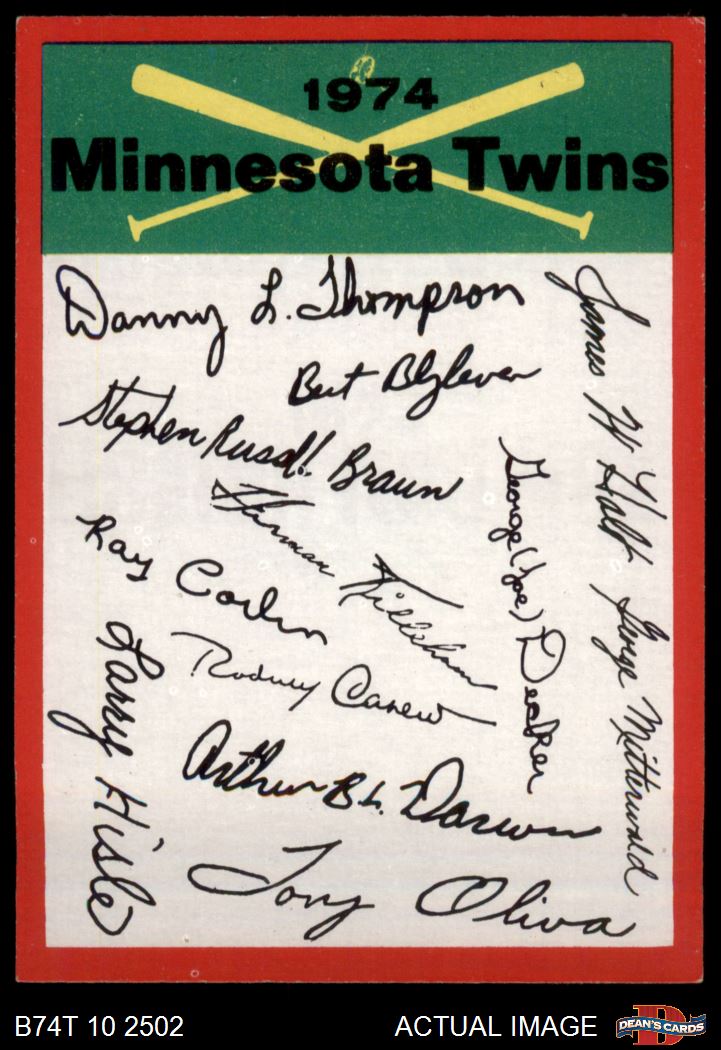 1974
Minnesota Twins
Danny L. Thompson
James W Holt
Bert Blyleven
Stephen Russell Braun
George (Joe) Decker
Harmon Killebrew
Ray Corbin
George Mitterwald
Larry Hisle
Rodney Carew
Arthur B L. Darwin
Tony Oliva
B74T 10 2502
ACTUAL IMAGE
DEAN'S CARDS